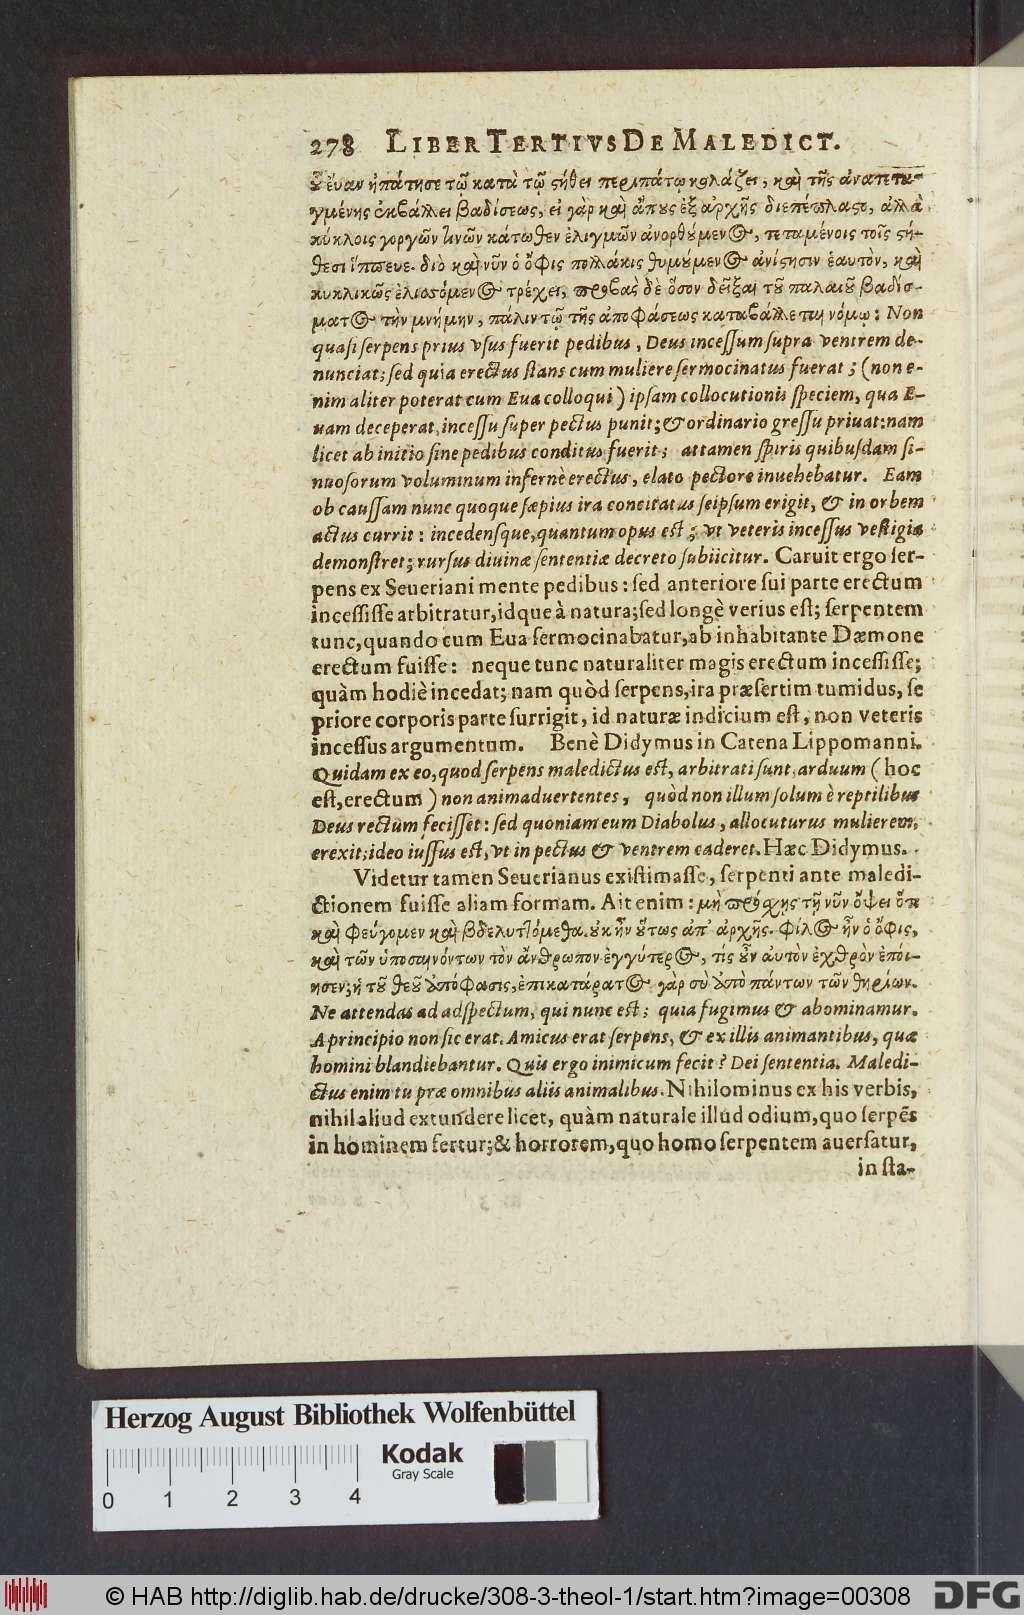 278 LIBER TERTIVS DE MALEDICT.
εὔαν ἠπάτησε τῷ κατὰ τῷ στήθει περιπάτῳ κολάζει, καὶ τῆς ἀναπεπτα-
γμένης ἐκβάλλει βαδίσεως, εἰ γὰρ καὶ ἄπους ἐξ ἀρχῆς διεπέπλαστο, ἀλλὰ
κύκλοις γοργῶν τινῶν κάτωθεν ἑλιγμῶν ἀνορθούμενος, τεταμένοις τοῖς στή-
θεσι ἵππευε. διὸ καὶ νῦν ὁ ὄφις πολλάκις θυμούμενος ἀνίστησιν ἑαυτὸν, καὶ
κυκλικῶς ἑλισσόμενος τρέχει, προβὰς δὲ ὅσον δεῖξαι τοῦ παλαιοῦ βαδίσ-
ματος τὴν μνήμην, πάλιν τῷ τῆς ἀποφάσεως καταβάλλεται νόμῳ: Non
quasi serpens prius vsus fuerit pedibus, Deus incessum supra ventrem de-
nunciat; sed quia erectus stans cum muliere sermocinatus fuerat; (non e-
nim aliter poterat cum Eua colloqui) ipsam collocutionis speciem, qua E-
uam deceperat, incessu super pectus punit; & ordinario gressu priuat: nam
licet ab initio sine pedibus conditus fuerit; attamen spiris quibusdam si-
nuosorum voluminum infernè erectus, elato pectore inuehebatur. Eam
ob caussam nunc quoque sæpius ira concitatus seipsum erigit, & in orbem
actus currit: incedensque, quantum opus est; vt veteris incessus vestigia
demonstret; rursus diuinæ sententiæ decreto subiicitur. Caruit ergo ser-
pens ex Seueriani mente pedibus: sed anteriore sui parte erectum
incessisse arbitratur, idque à natura; sed longè verius est; serpentem
tunc, quando cum Eua sermocinabatur, ab inhabitante Dæmone
erectum fuisse: neque tunc naturaliter magis erectum incessisse;
quàm hodiè incedat; nam quòd serpens, ira præsertim tumidus, se
priore corporis parte surrigit, id naturæ indicium est, non veteris
incessus argumentum. Benè Didymus in Catena Lippomanni.
Quidam ex eo, quod serpens maledictus est, arbitrati sunt, arduum (hoc
est, erectum) non animaduertentes, quòd non illum solum è reptilibus
Deus rectum fecisset: sed quoniam eum Diabolus, allocuturus mulierem,
erexit; ideo iussus est, vt in pectus & ventrem caderet. Hæc Didymus.
Videtur tamen Seuerianus existimasse, serpenti ante maledi-
ctionem fuisse aliam formam. Ait enim: μὴ πρόσχῃς τῇ νῦν ὄψει ὅτι
καὶ φεύγομεν καὶ βδελυττόμεθα. οὐκ ἦν οὕτως ἀπ' ἀρχῆς. φίλος ἦν ὁ ὄφις,
καὶ τῶν ὑποσαινόντων τὸν ἄνθρωπον ἐγγύτερος, τίς οὖν αὐτὸν ἐχθρὸν ἐποί-
ησεν; ἡ τοῦ θεοῦ ἀπόφασις, ἐπικατάρατος γὰρ σὺ ἀπὸ πάντων τῶν θηρίων.
Ne attendas ad adspectum, qui nunc est; quia fugimus & abominamur.
A principio non sic erat. Amicus erat serpens, & ex illis animantibus, quæ
homini blandiebantur. Quis ergo inimicum fecit? Dei sententia. Maledi-
ctus enim tu præ omnibus aliis animalibus. Nihilominus ex his verbis,
nihil aliud extundere licet, quàm naturale illud odium, quo serpẽs
in hominem fertur; & horrorem, quo homo serpentem auersatur,
in sta-
Herzog August Bibliothek Wolfenbüttel
Kodak
Gray Scale
0 1 2 3 4
© HAB http://diglib.hab.de/drucke/308-3-theol-1/start.htm?image=00308
DFG